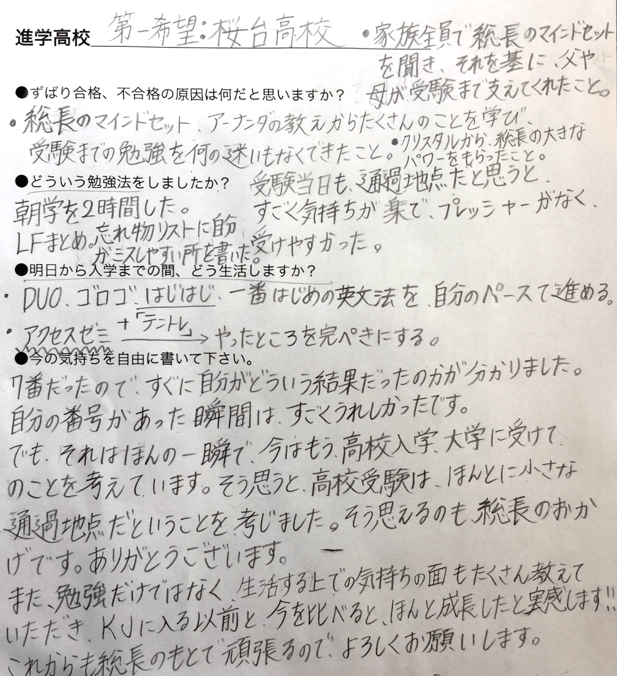 進学高校 第一希望:桜台高校
●ずばり合格、不合格の原因は何だと思いますか?
・総長のマインドセット、アーナンダの教えからたくさんのことを学び、
受験までの勉強を何の迷いもなくできたこと。
・家族全員で総長のマインドセット
を聞き、それを基に、父や
母が受験まで支えてくれたこと。
・クリスタルから、総長の大きな
パワーをもらったこと。
受験当日も、通過地点だと思うと、
すごく気持ちが楽で、プレッシャーがなく、
受けやすかった。
●どういう勉強法をしましたか?
朝学を2時間した。
LFまとめ。忘れ物リストに自分
がミスしやすい所を書いた。
●明日から入学までの間、どう生活しますか?
・DUO、ゴロゴ、はじはじ、一番はじめの英文法を、自分のペースで進める。
・アクセスゼミ+「テントレ」→やったところを完ぺきにする。
●今の気持ちを自由に書いて下さい。
7番だったので、すぐに自分がどういう結果だったのかが分かりました。
自分の番号があった瞬間は、すごくうれしかったです。
でも、それはほんの一瞬で、今はもう、高校入学、大学に受けて
のことを考えています。そう思うと、高校受験は、ほんとに小さな
通過地点だということを、考じました。そう思えるのも、総長のおか
げです。ありがとうございます。
また、勉強だけではなく、生活する上での気持ちの面もたくさん教えて
いただき、KJに入る以前と、今を比べると、ほんと成長したと実感します!!
これからも総長のもとで頑張るので、よろしくお願いします。